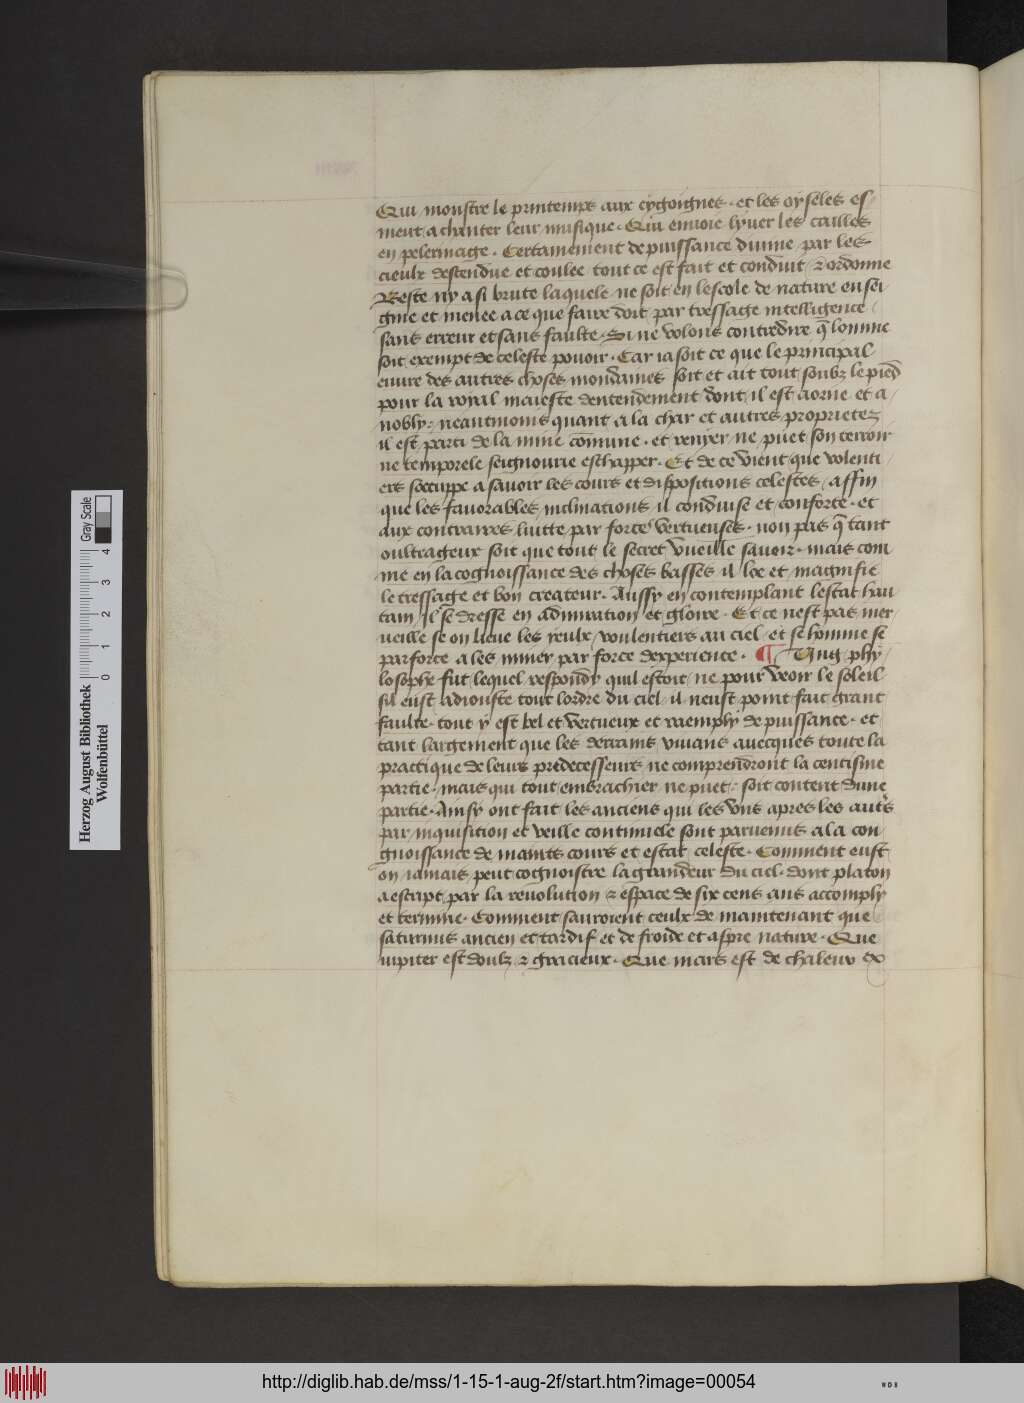 Qui monstre le printemps aux cygoignes · et les oyseles es
meut a chanter leur musique · Qui enuoie lyuer les cailles
en pelerinage · Certainement de puissance diuine par les
cieulx descendue et coulee tout ce est fait et conduit ⁊ ordonne
Beste ny a si brute laquele ne soit en lescole de nature ensei
gnie et menee a ce que faire doit par tressage intelligence
sans erreur et sans faulte · Si ne volons contredire q̄ lomme
soit exempt de celeste pouoir · Car ia soit ce que le principal
euure des autres choses mondaines soit et ait tout soubz le pied
pour la royal maieste dentendement dont il est aorne et a
nobly : neantmoins quant a la char et autres proprietez
il est parti de la mine cōmune · et renyer ne puet son terroir
ne temporele seignourie eschapper · Et de ce vient que volenti
ers soccuppe a sauoir les cours et dispositions celestes / affin
que les fauorables inclinations il conduise et conforte · et
aux contraires luitte par force vertueuses · non pas q̄ tant
oultrageux soit que tout le secret vueille sauoir · mais com
me en la cognoissance des choses basses il loe et magnifie
le tressage et bon createur · Aussy en contemplant lestat hau
tain / il se dresse en admiration et gloire · Et ce nest pas mer
ueille se on lieue les yeulx voulentiers au ciel · et se homme se
parforce a les miner par force dexperience · ¶ Ung phy
losophe fut lequel respondy quil estoit ne pour veoir le soleil
sil eust adiouste tout lordre du ciel · il neust point fait grant
faulte · tout y est bel et vertueux et raemply de puissance · et
tant largement que les derrains viuans auecques toute la
practique de leurs predecesseurs ne comprendront la centisme
partie · mais qui tout embrachier ne puet : soit content dune
partie · Ainsy ont fait les anciens qui les vns apres les aut's
par inquisition et veille continuele sont paruenus a la con
gnoissance de maints cours et estat celeste · Comment eust
on iamais peut cognoistre la grandeur du ciel · dont platon
a escript par la reuolution ⁊ espace de six cens ans accomply
et termine · Comment sauroient ceulx de maintenant que
saturnus ancien et tardif et de froide et aspre nature · Que
iupiter est doulz ⁊ gracieux · Que mars est de chaleur ex
Herzog August Bibliothek
Wolfenbüttel
0 1 2 3 4
Gray Scale
http://diglib.hab.de/mss/1-15-1-aug-2f/start.htm?image=00054